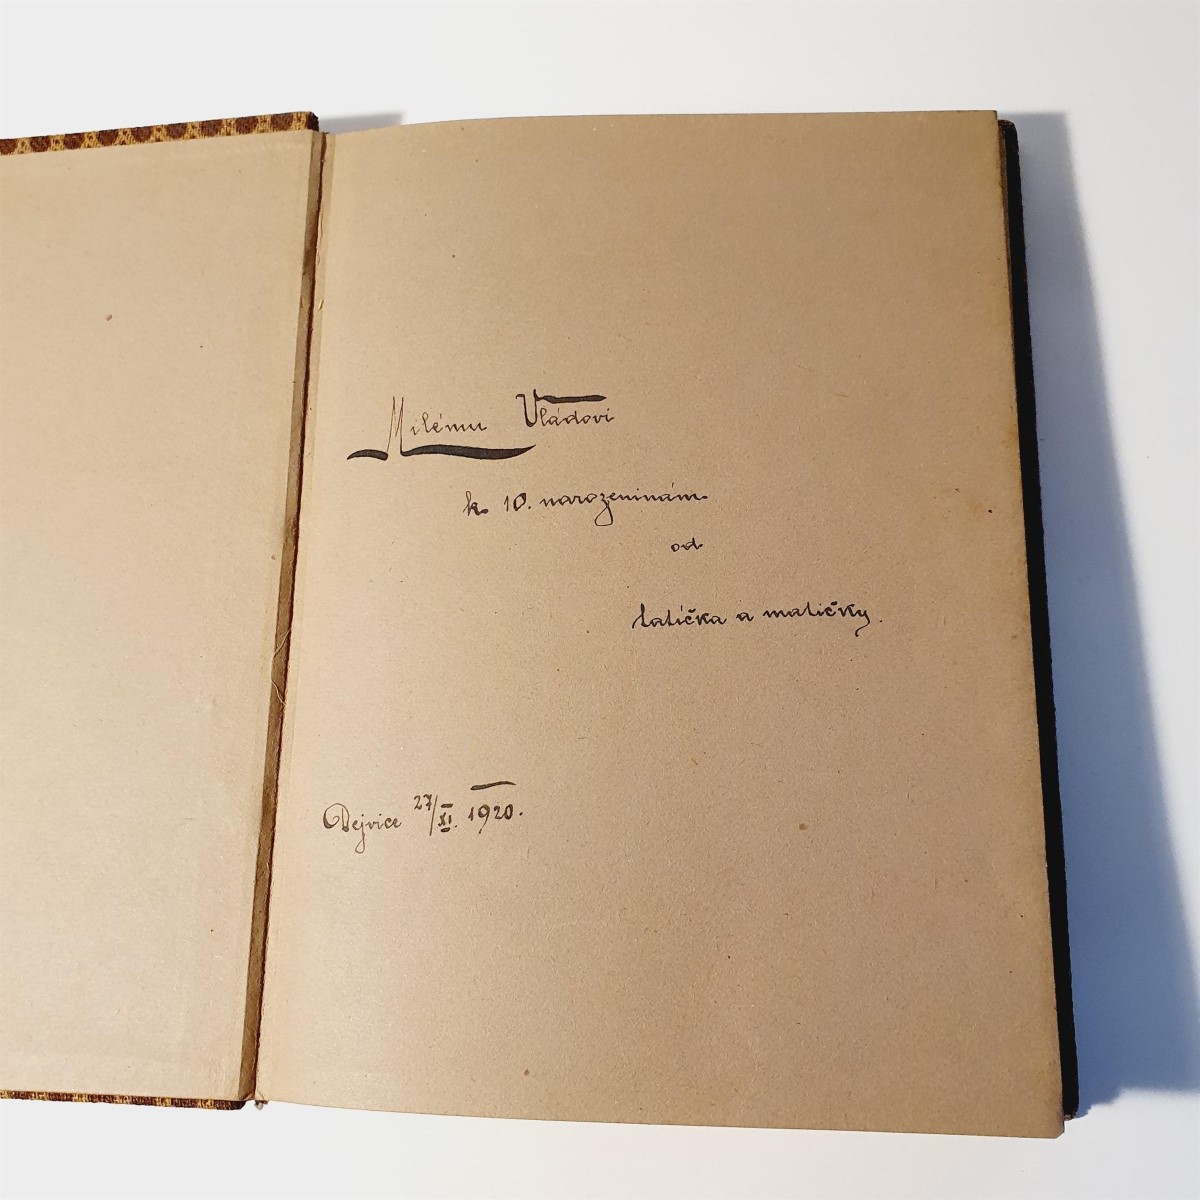 Milému Vládovi
k 10. narozeninám
od
tatíčka a matičky.
Dejvice 27/XI. 1920.